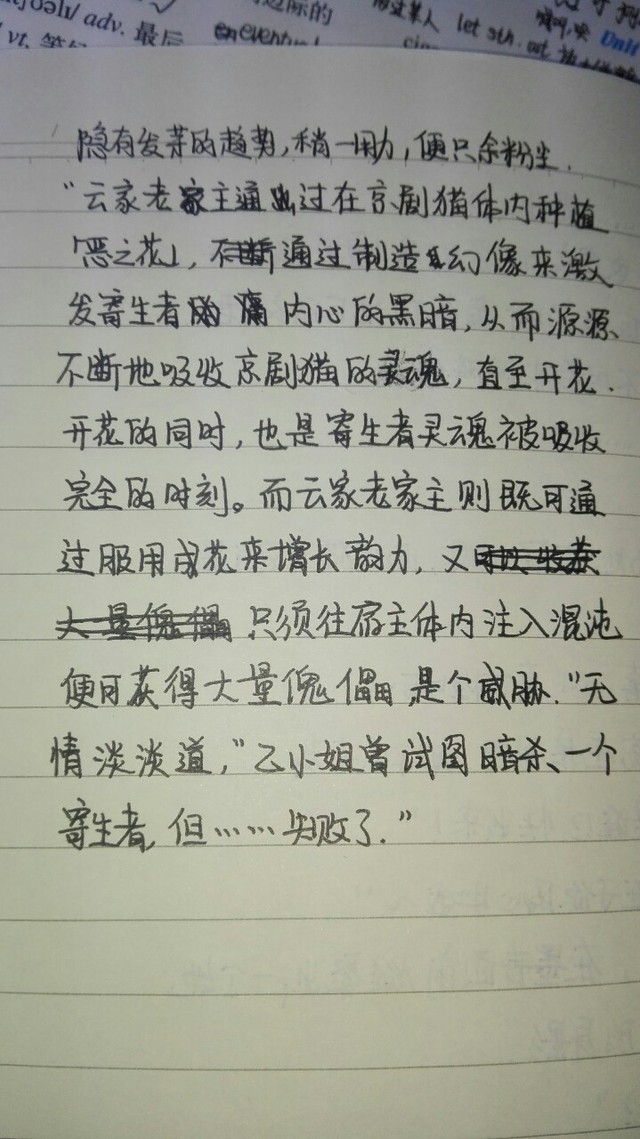 / adv. 最后
vt.
边际的
eventual
let sth. out
Unit
隐有发芽的趋势,稍一用力,便只余粉尘.
“云家老家主通过在京剧猫体内种植
「恶之花」,不断通过制造幻像来激
发寄生者内心的黑暗,从而源源
不断地吸收京剧猫的灵魂,直至开花.
开花的同时,也是寄生者灵魂被吸收
完全的时刻。而云家老家主则既可通
过服用成花来增长韵力,又可以收获
大量傀儡 只须往宿主体内注入混沌
便可获得大量傀儡,是个威胁.”无
情淡淡道,”乙小姐曾试图暗杀一个
寄生者,但……失败了.”